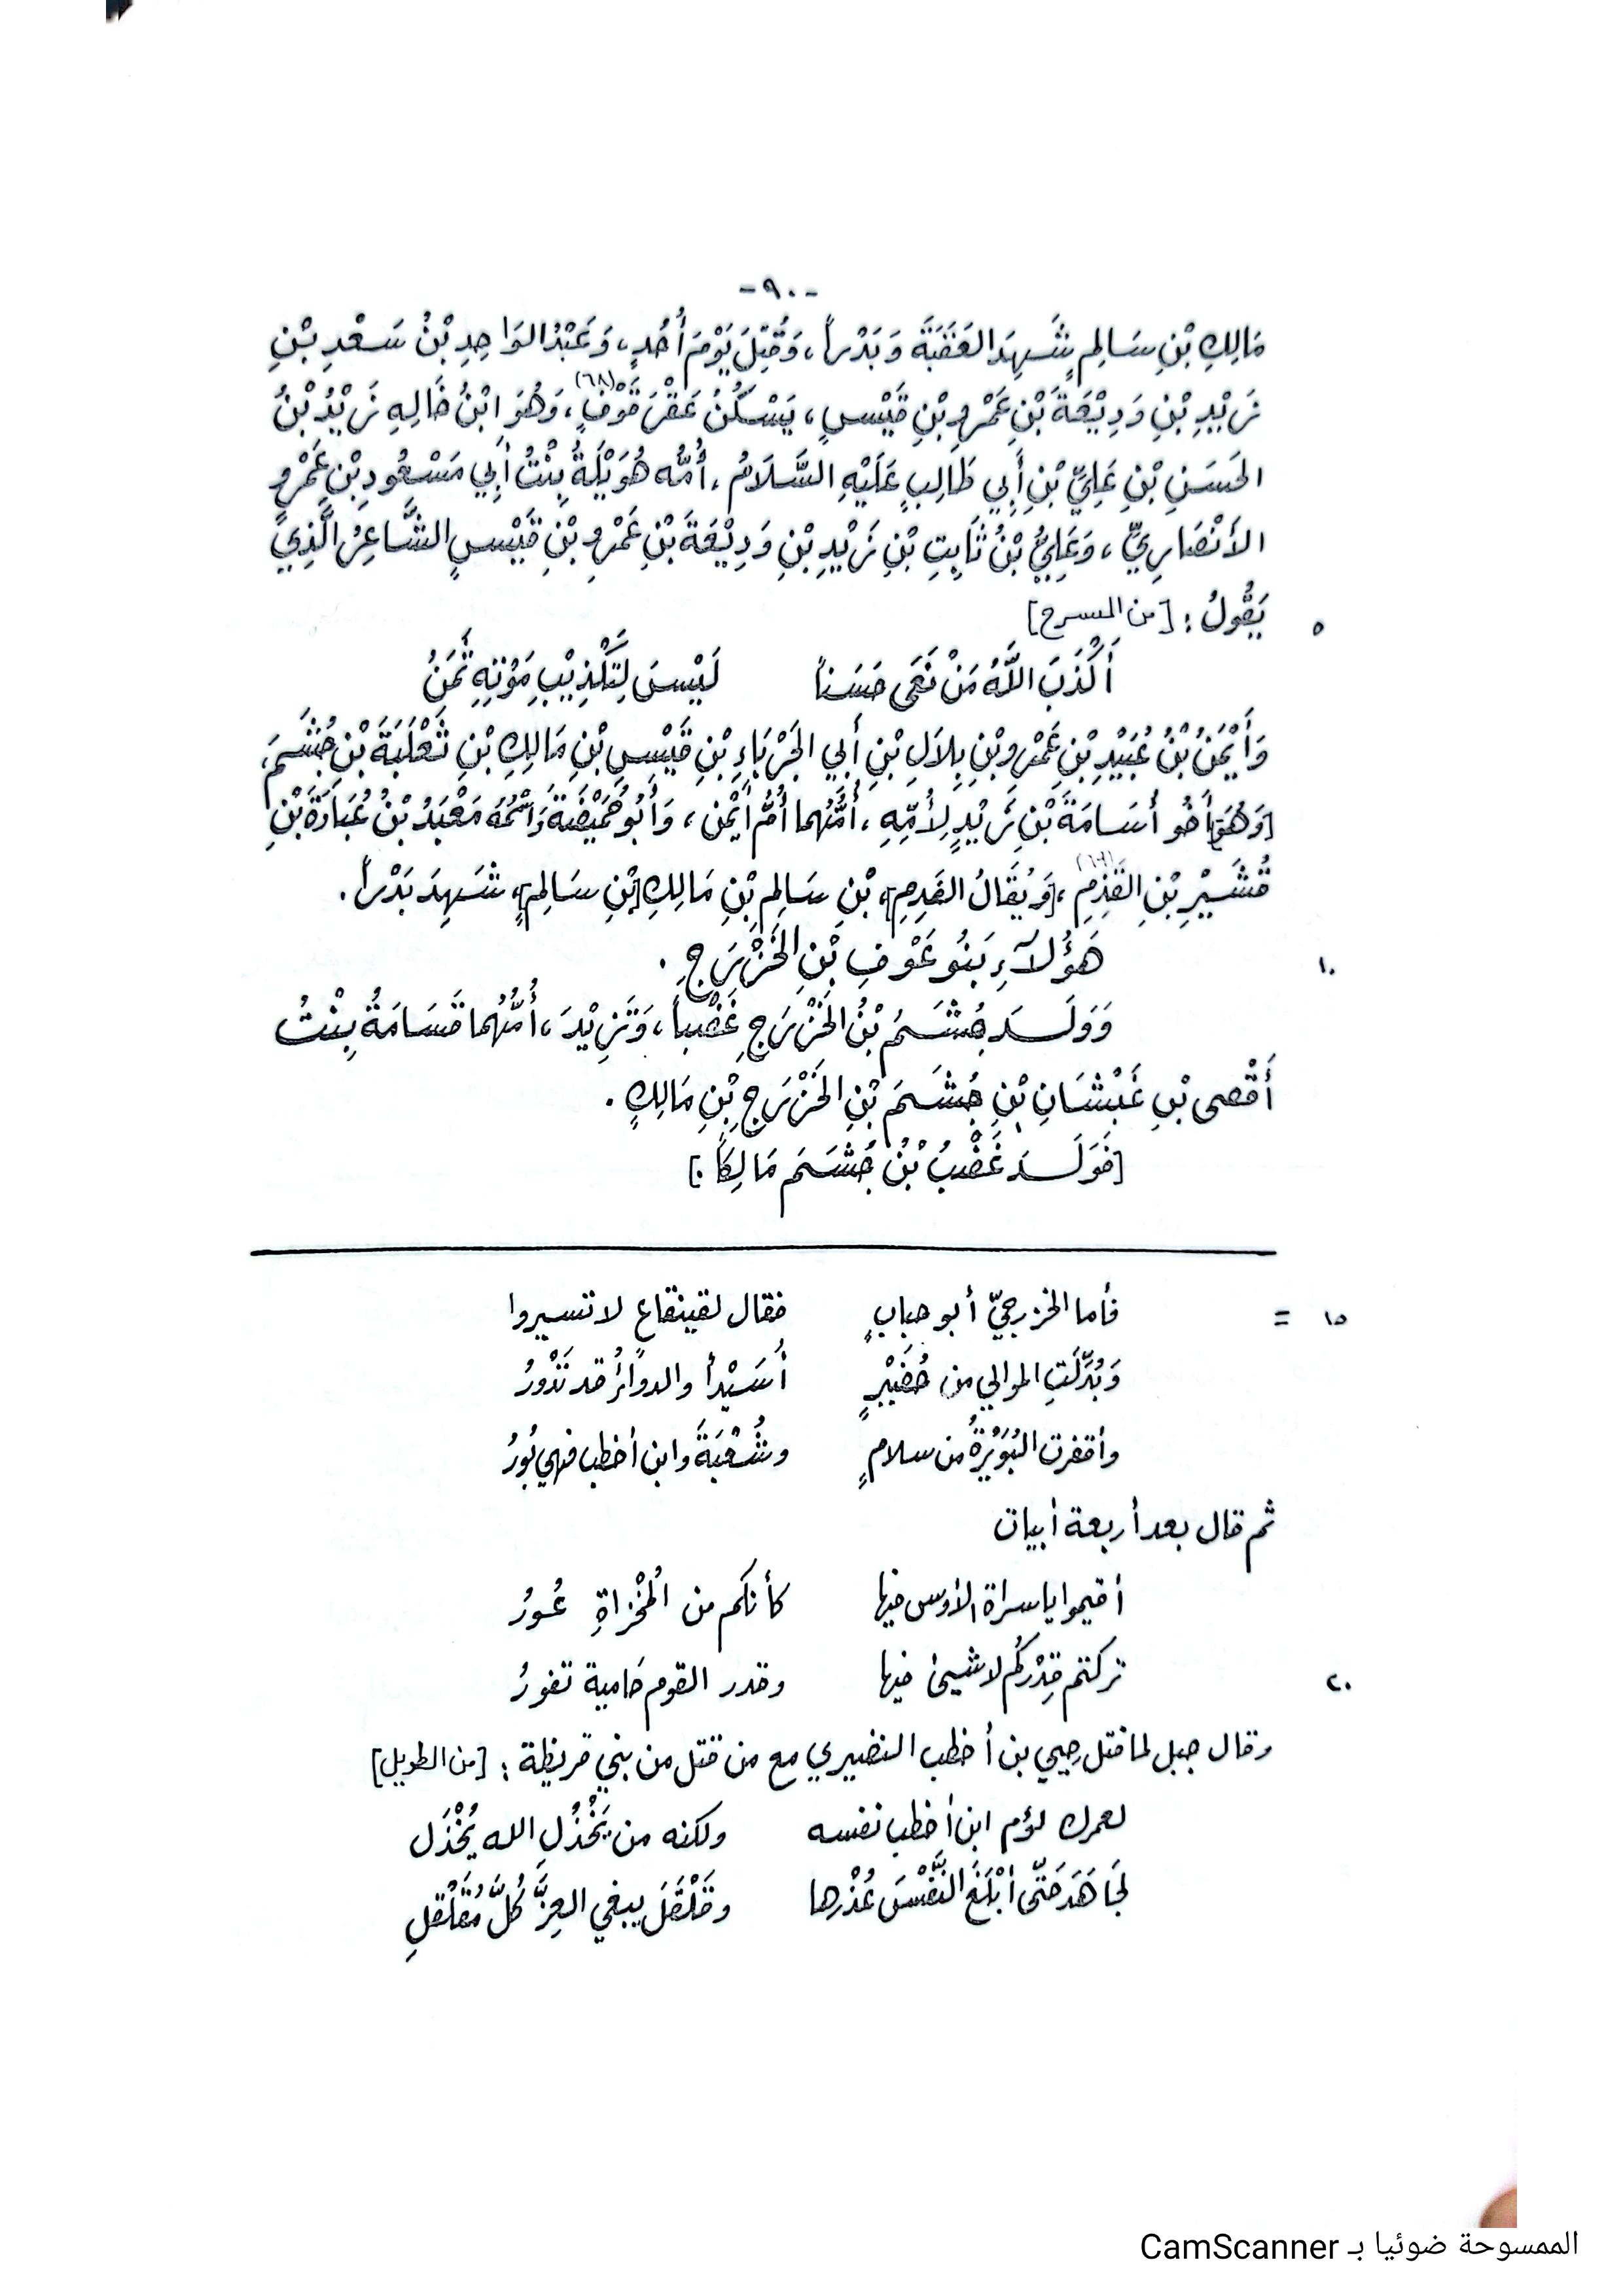 -٩٠-
مَالِكِ بْنِ سَالِمٍ شَهِدَ العَقَبَةَ وَبَدْراً، وَقُتِلَ يَوْمَ أُحُدٍ، وَعَبْدُ الوَاحِدِ بْنُ سَعْدِ بْنِ
زَيْدِ بْنِ وَدِيْعَةَ بْنِ عَمْرِو بْنِ قَيْسٍ، يَسْكُنُ عَقْرَقَوْفَ(٦٨)، وَهُوَ ابْنُ خَالِهِ زَيْدُ بْنُ
الحَسَنِ بْنِ عَلِيِّ بْنِ أَبِي طَالِبٍ عَلَيْهِ السَّلَامُ، أُمُّه هُوَيْلَةُ بِنْتُ أَبِي مَسْعُودِ بْنِ عَمْرٍو
الأَنْصَارِيِّ، وَعَلِيُّ بْنُ ثَابِتِ بْنِ زَيْدِ بْنِ وَدِيْعَةَ بْنِ عَمْرِو بْنِ قَيْسٍ الشَّاعِرُ الَّذِي
٥ يَقُولُ: [من المسرح]
أَكْذَبَ اللَّهُ مَنْ نَعَى حَسَناً لَيْسَ لِتَكْذِيْبِ مَوْتِهِ ثَمَنُ
وَأَيْمَنُ بْنُ عُبَيْدِ بْنِ عَمْرِو بْنِ بِلَالِ بْنِ أَبِي الجَرْبَاءِ بْنِ قَيْسِ بْنِ مَالِكِ بْنِ ثَعْلَبَةَ بْنِ جُشَمَ،
[وَهُوَ] أَخُو أُسَامَةَ بْنِ زَيْدٍ لِأُمِّهِ، أُمُّهُما أُمُّ أَيْمَن، وَأَبُو خَمِيْضَةَ وَاسْمُهُ مَعْبَدُ بْنُ عُبَادَةَ بْنِ
قُشَيْرِ بْنِ القَذِمِ(٦٩)، [وَيُقَالُ الفَدِمِ]، بْنِ سَالِمِ بْنِ مَالِكِ [بْنِ سَالِمٍ]، شَهِدَ بَدْراً.
١٠ هَؤُلآءِ بَنُو عَوْفِ بْنِ الخَزْرَجِ.
وَوَلَدَ جُشَمُ بْنُ الخَزْرَجِ غَضْباً، وَتَزِيْدَ، أُمُّهُما قَسَامَةُ بِنْتُ
أَقْصى بْنِ غَبْشَانِ بْنِ جُشَمَ بْنِ الخَزْرَجِ بْنِ مَالِكٍ.
[فَوَلَدَ غَضْبُ بْنُ جُشَمَ مَالِكاً.]
١٥ = فأما الخزرجيّ أبو حبابٍ فقال لقينقاعٍ لا تسيروا
وَبُدِّلَتِ الموالي من حُضَيْرٍ أُسَيْداً والدوائرُ قد تَدُورُ
وأقفرت البُوَيْرَةُ من سلامٍ وسُعْيَةَ وابن أخطب فهي بُورُ
ثم قال بعد أربعة أبيات
أقيموا يا سراة الأوس فيها كأنكم من المَخْزاةِ عُورُ
٢٠ تركتم قِدْرَكُم لا شيئ فيها وقدر القوم حَامية تفورُ
وقال جبل لما قتل حيي بن أخطب النضيري مع من قتل من بني قريظة: [من الطويل]
لعمرك لؤم ابن أخطب نفسه ولكنه من يَخْذُلِ الله يُخْذَل
لجَاهَدَ حَتّى أَبْلَغَ النَّفْسَ عُذْرِها وقَلْقَلَ يبغي العِزَّ كُلَّ مُقَلْقَلِ
الممسوحة ضوئيا بـ CamScanner